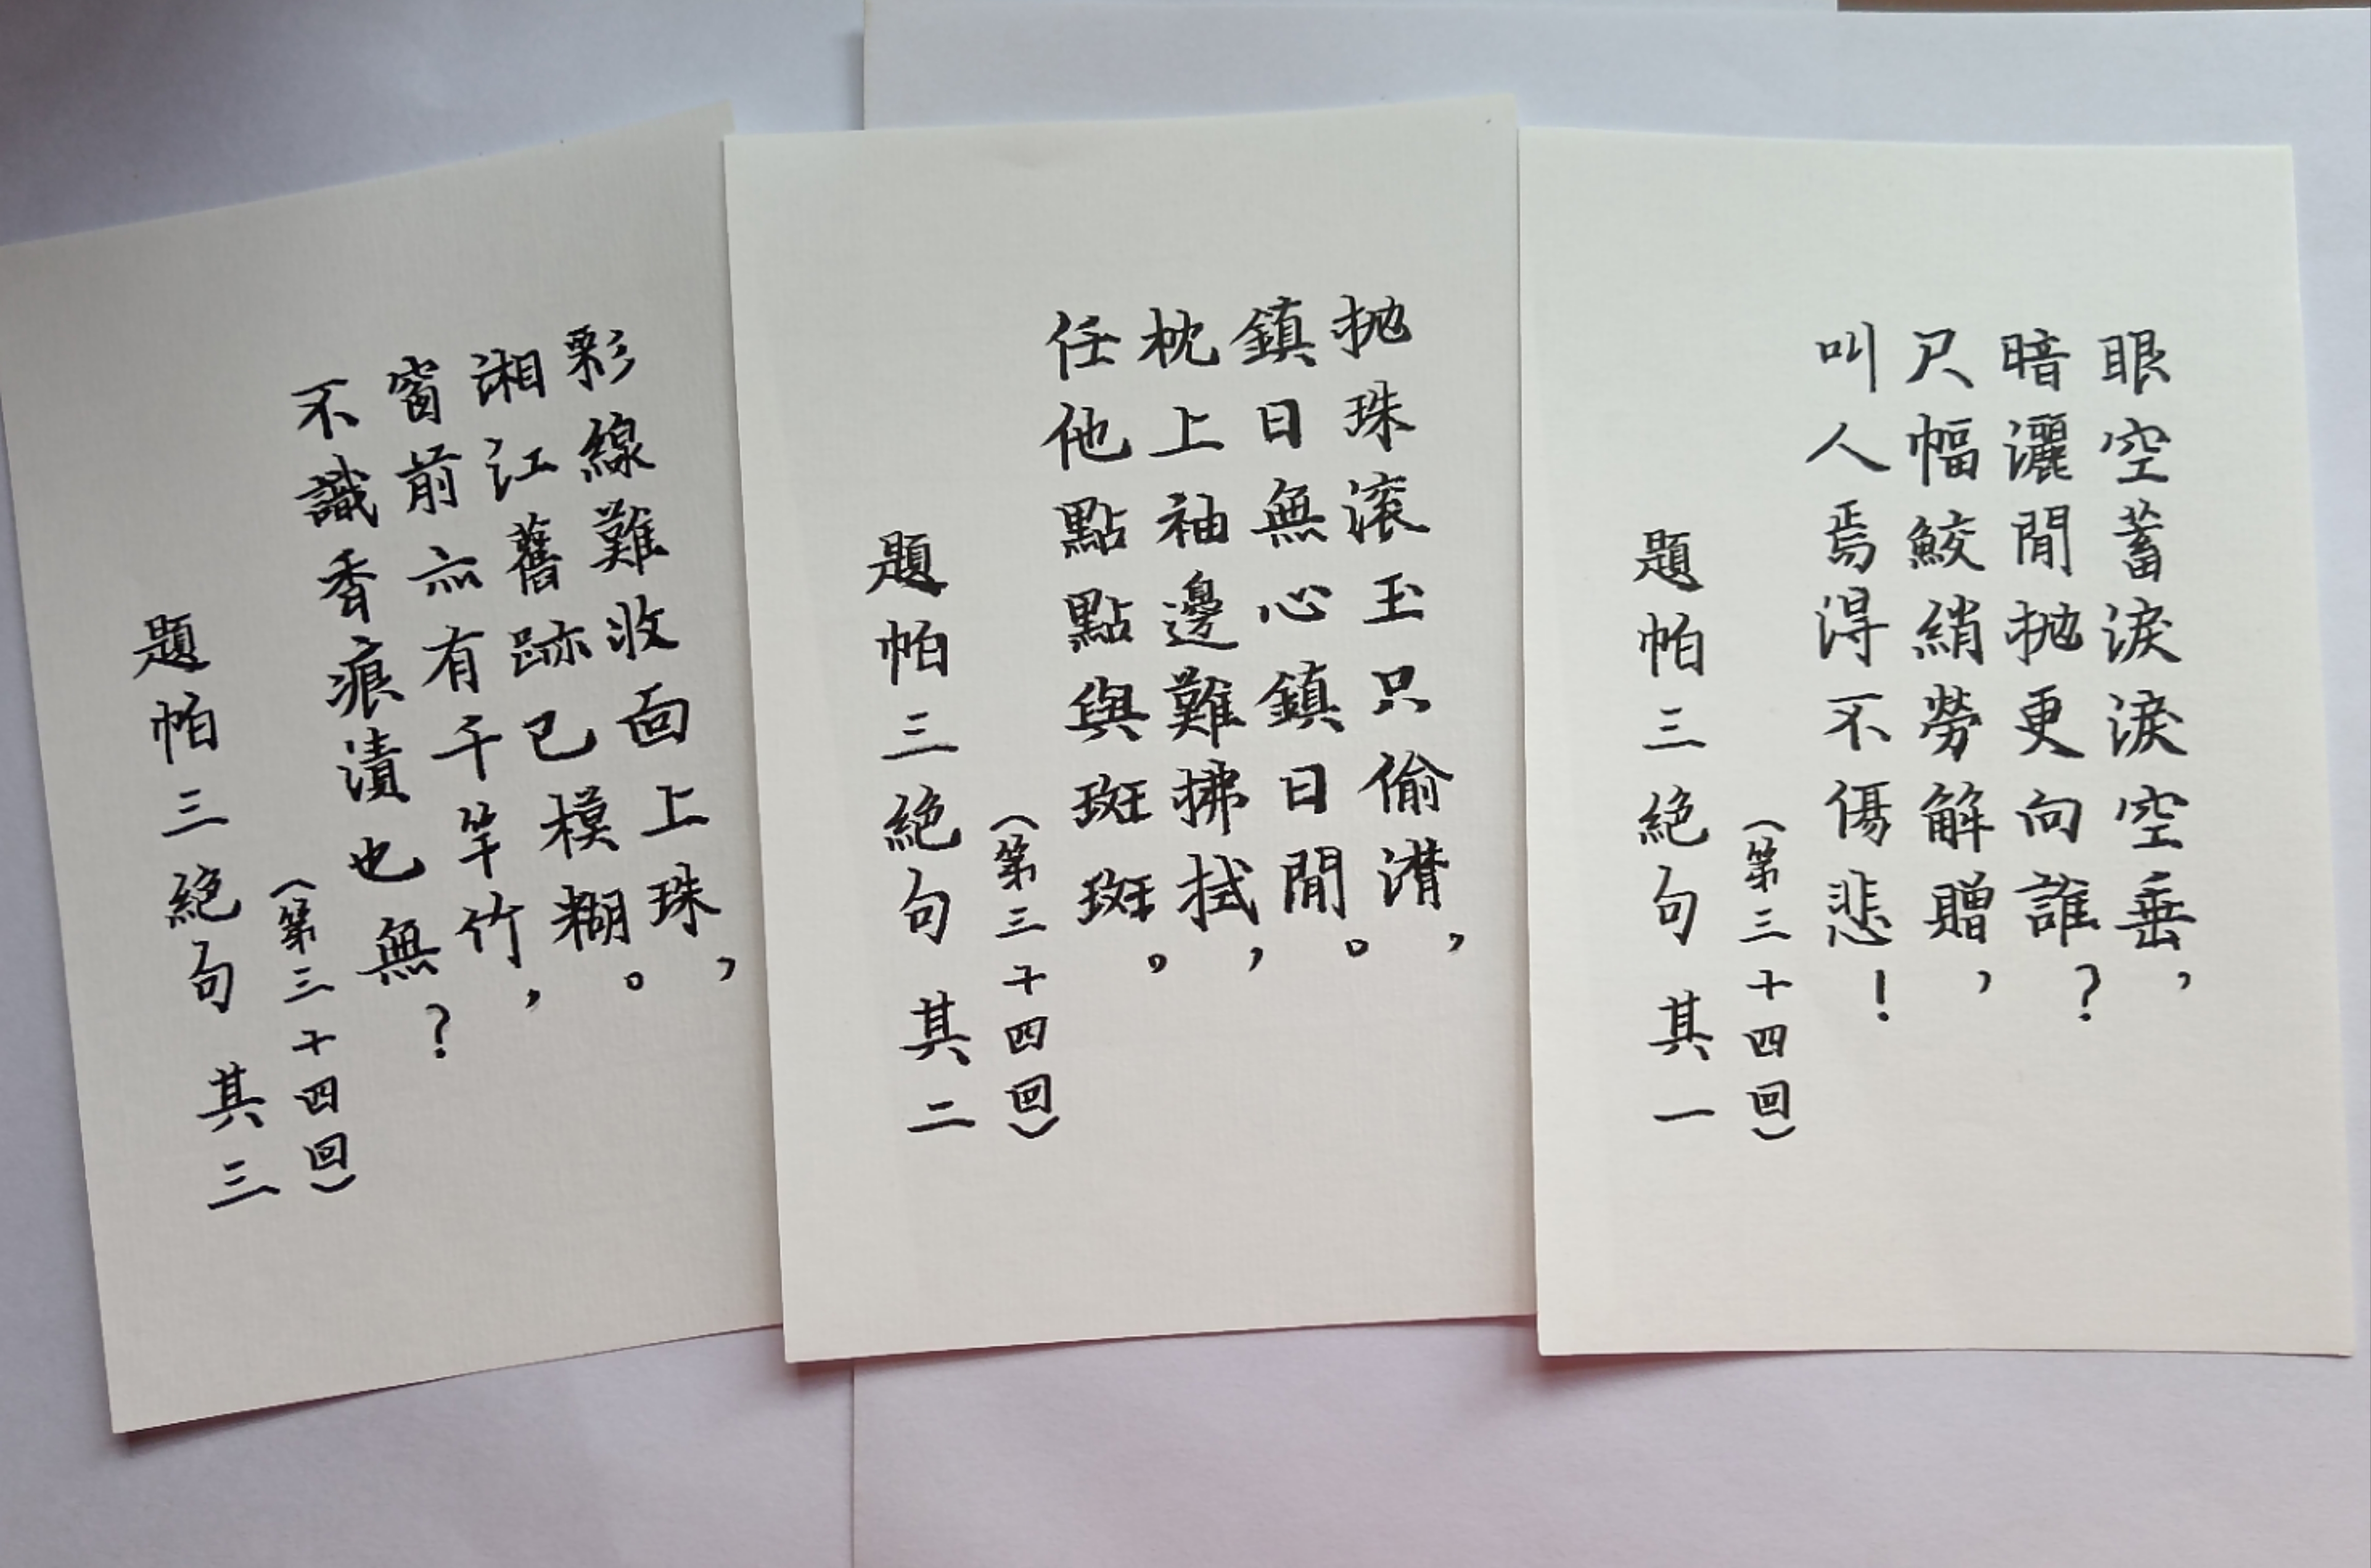 眼空蓄淚淚空垂，
暗灑閒抛更向誰？
尺幅鮫綃勞解贈，
叫人焉得不傷悲！
（第三十四回）
題帕三絕句 其一
抛珠滚玉只偷潸，
鎮日無心鎮日閒。
枕上袖邊難拂拭，
任他點點與斑斑。
（第三十四回）
題帕三絕句 其二
彩線難收面上珠，
湘江舊跡已模糊。
窗前亦有千竿竹，
不識香痕漬也無？
（第三十四回）
題帕三絕句 其三